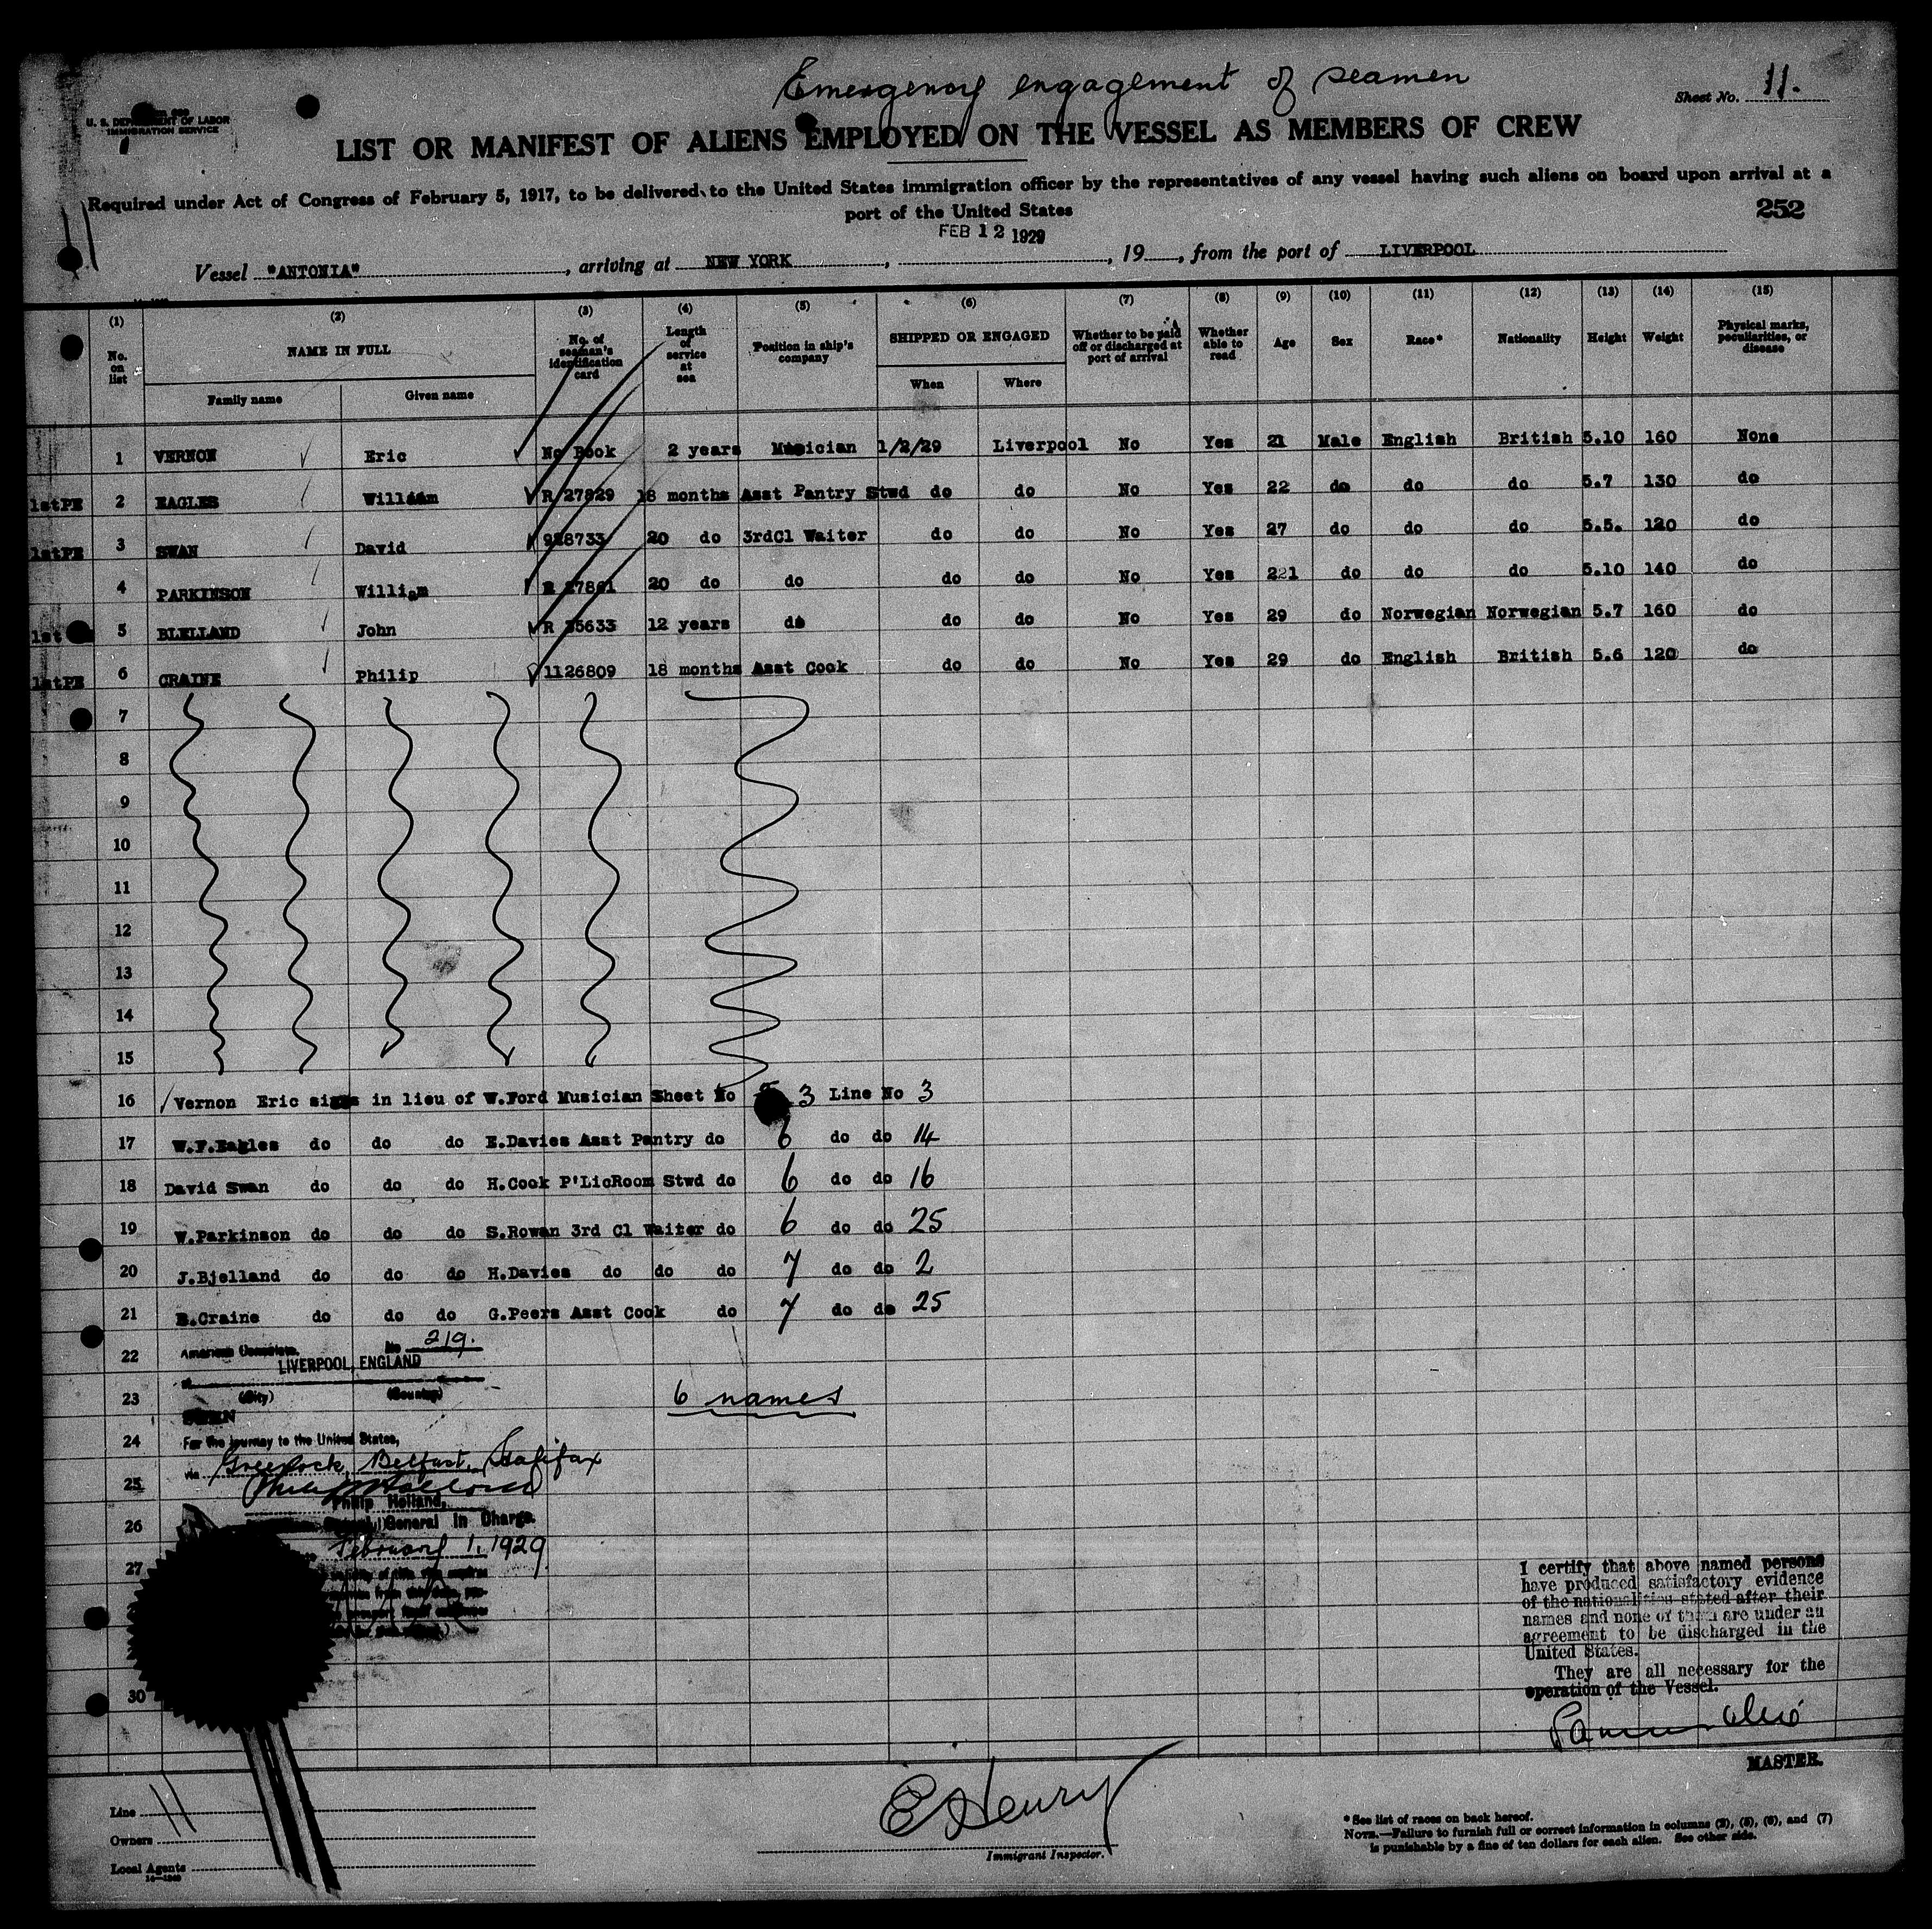 Emergency engagement of seamen
Sheet No. 11.
U. S. DEPARTMENT OF LABOR
IMMIGRATION SERVICE
LIST OR MANIFEST OF ALIENS EMPLOYED ON THE VESSEL AS MEMBERS OF CREW
Required under Act of Congress of February 5, 1917, to be delivered to the United States immigration officer by the representatives of any vessel having such aliens on board upon arrival at a
port of the United States
252
FEB 12 1929
Vessel "ANTONIA", arriving at NEW YORK, , 19 , from the port of LIVERPOOL
(1) (2) (3) (4) (5) (6) (7) (8) (9) (10) (11) (12) (13) (14) (15)
No. on list NAME IN FULL No. of seaman's identification card Length of service at sea Position in ship's company SHIPPED OR ENGAGED Whether to be paid off or discharged at port of arrival Whether able to read Age Sex Race* Nationality Height Weight Physical marks, peculiarities, or disease
Family name Given name When Where
1 VERNON Eric No Book 2 years Musician 1/2/29 Liverpool No Yes 21 Male English British 5.10 160 None
1stPE 2 EAGLES William R 27829 18 months Asst Pantry Stwd do do No Yes 22 do do do 5.7 130 do
1stPE 3 SWAN David 928733 20 do 3rdCl Waiter do do No Yes 27 do do do 5.5. 120 do
4 PARKINSON William R 27861 20 do do do do No Yes 221 do do do 5.10 140 do
1st 5 BLELLAND John R 35633 12 years do do do No Yes 29 do Norwegian Norwegian 5.7 160 do
1stPE 6 CRAINE Philip 1126809 18 months Asst Cook do do No Yes 29 do English British 5.6 120 do
7
8
9
10
11
12
13
14
15
16 Vernon Eric signs in lieu of W.Ford Musician Sheet No 3 Line No 3
17 W.F.Eagles do do do E.Davies Asst Pantry do 6 do do 14
18 David Swan do do do H.Cook P'LicRoom Stwd do 6 do do 16
19 W.Parkinson do do do S.Rowan 3rd Cl Waiter do 6 do do 25
20 J.Bjelland do do do H.Davies do do do 7 do do 2
21 B.Craine do do do G.Peers Asst Cook do 7 do do 25
22 American Consulate. No 219.
LIVERPOOL, ENGLAND
23 (City) (Country)
6 names
SEEN
24 For the journey to the United States,
via Greenock, Belfast, Halifax
25 Philip Holland
Philip Holland,
26 General in Charge.
February 1, 1929
27
30
I certify that above named persons
have produced satisfactory evidence
of the nationalities stated after their
names and none of them are under an
agreement to be discharged in the
United States.
They are all necessary for the
operation of the Vessel.
MASTER.
E Henry
Immigrant Inspector.
Line
Owners
Local Agents
* See list of races on back hereof.
NOTE.—Failure to furnish full or correct information in columns (2), (5), (6), and (7)
is punishable by a fine of ten dollars for each alien. See other side.